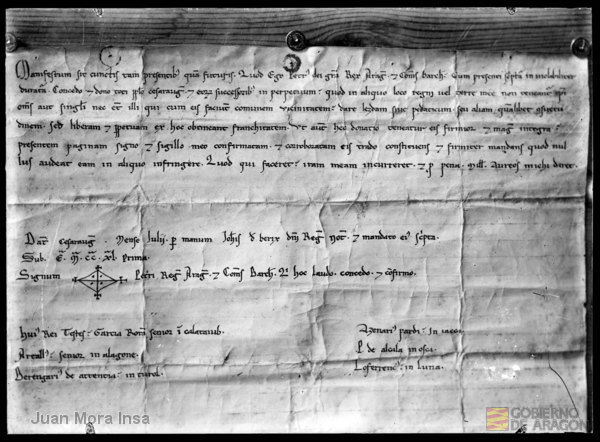 Manifestum sit cunctis tam presentibꝰ quã futuris. Quod Ego Petrꝰ dei grã Rex Arag̃. ⁊ Comes Barch̃. Cum presenti sc̃pta in violabiliter
duratura. Concedo ⁊ dono toti pplo cesaraug̃. ⁊ eoꝝ successoribꝰ in perpetuum. quod in aliquo loco regni vel terre mee non teneant
omẽs aut singl̃i nec etiã illi qui cum eis faciunt comunem vicinitatem. dare lezdam sive pedaticum. seu aliam quãlibet
dinem. sed liberam ⁊ ppetuam ex hoc obtineant franchitatem. Ut aut̃ hec donatio teneatur eis firmior ⁊ mag̃ integra.
presentem paginam signo ⁊ sigillo meo confirmatam. ⁊ corroboratam eis trado constituens ⁊ firmiter mandans quod nul
lus audeat eam in aliquo infringere. Quod qui faceret. iram meam incurreret. ⁊ p pena. Mill̃. Aureos michi daret.
Dat̃ Cesaraug̃. Mense Julii. p manum Joh̃is d̃ berix dñi Reg̃ Not̃. ⁊ mandato eiꝰ sc̃pta.
Sub. E. M̃. CC. XL. Prima.
Signum Petri Reg̃ Arag̃. ⁊ Comit̃ Barch̃. Qi hoc laudo. concedo. ⁊ cõfirmo.
Huiꝰ Rei Testes. Garcia Rom̃ senior ĩ calataiub.
Artallꝰ. senior in alagone.
Berengariꝰ de atrencia. in turol.
Azenariꝰ pardi. in iacca.
P. de alcala in osca.
Lofferrenc̃. in luna.
Juan Mora Insa
GOBIERNO
DE ARAGON